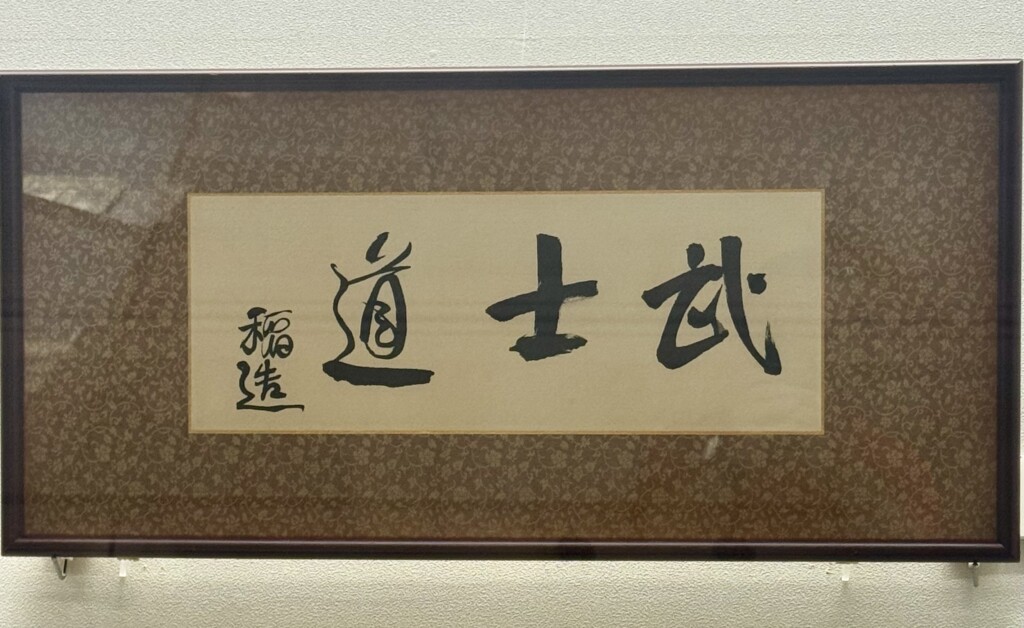 武士道
稲造